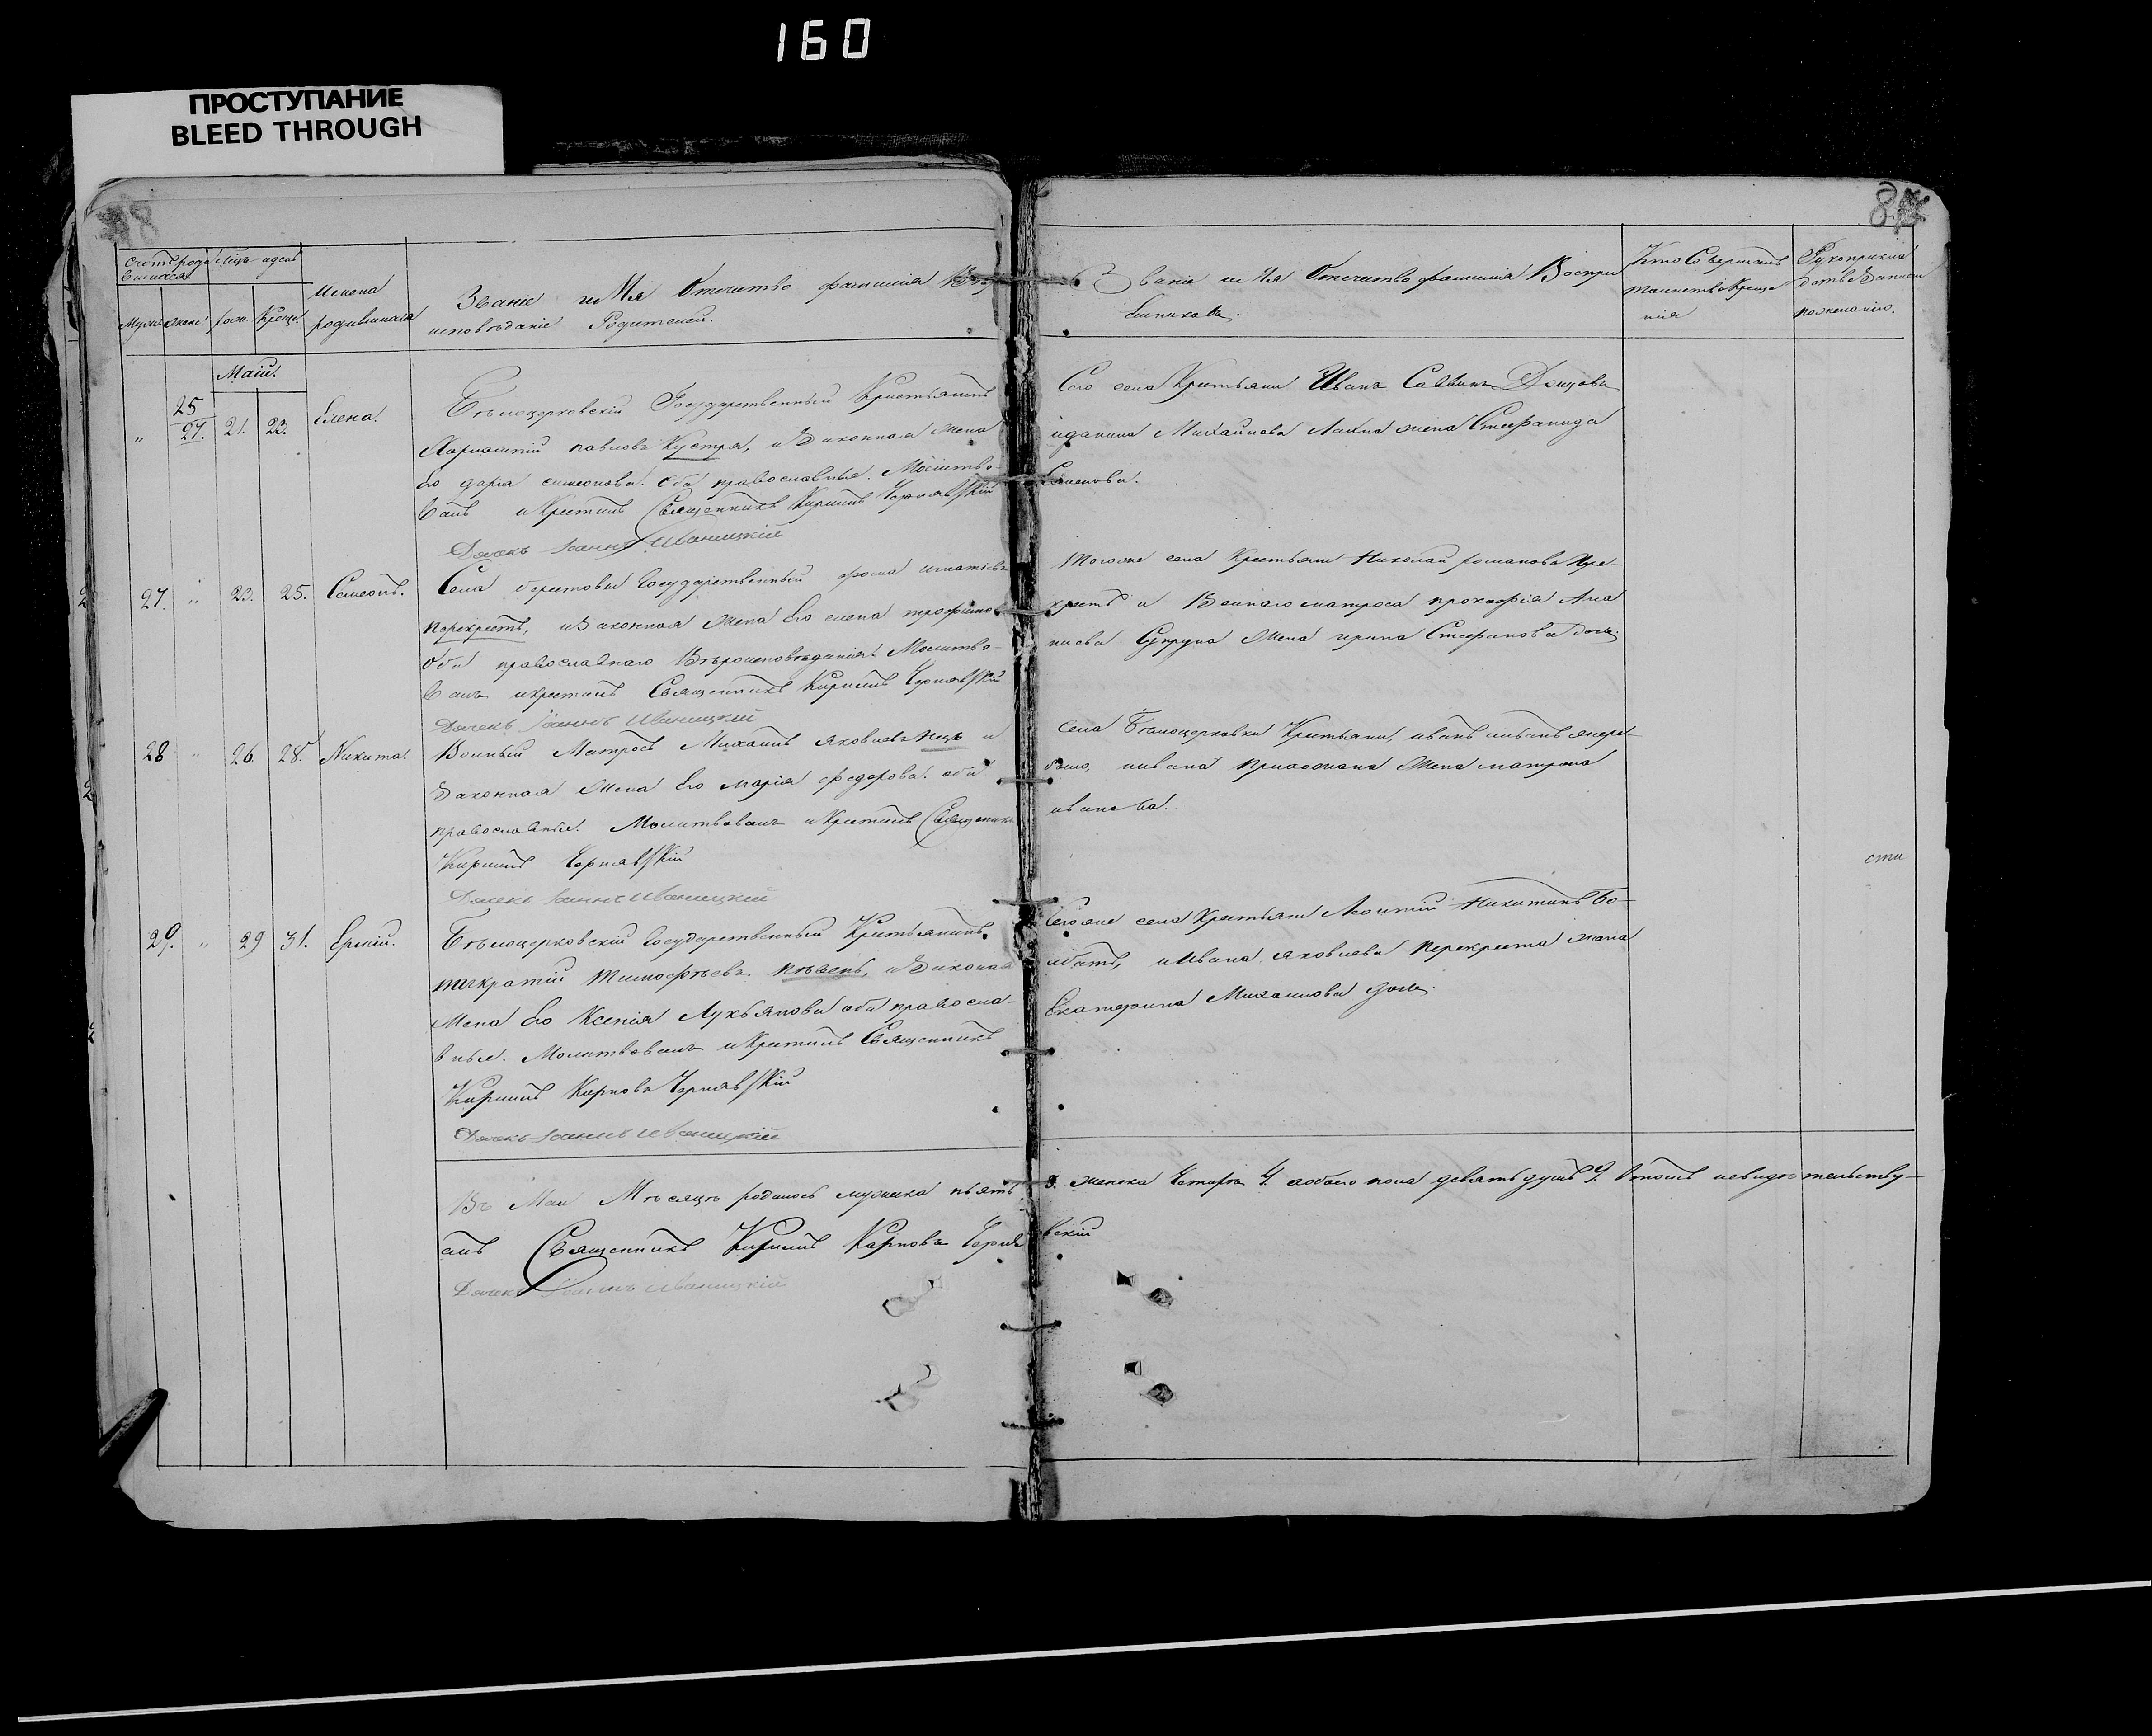 160
ПРОСТУПАНИЕ
BLEED THROUGH
Счетъ роди
вшихся
Мѣць и день
Муж.
Женс.
рож.
крещ.
Имена
родившихся
Званіе имя Отчество фамилія и Вѣро
исповѣданіе Родителей.
Званіе имя Отечество фамилія Воспри
емниковъ.
Кто Совершалъ
таинство Креще
нія
Рукоприкла
дство Записи
по желанію.
Маій.
25
27. 21. 23. Елена.
Бѣлоцерковскій Государственный Крестьянинъ
Харлампій павловъ Кустря, и Законная жена
Его дарія симеонова. Оба православные. Молитво-
валъ и Крестилъ Священникъ Кирилъ Чернявскій
Дьячекъ Іоаннъ Иваницкій
Сего села Крестьяни Иванъ Саввинъ Донцовъ
Михайлова жена Стефанида
Семенова.
27. " 23. 25. Симеонъ.
Села берестовы Государственный фома игнатіевъ
перекрестъ, и Законная жена Его елена трофимов
Оба православнаго Вѣроисповѣданія. Молитво-
валъ и крестилъ Священникъ Кирилъ Чернявскій
Дьячекъ Іоаннъ Иваницкій
Тогоже села Крестьяни Николай романовъ пере-
крестъ и Военнаго матроса прокофія Ана
ніева Супруна жена ирина Стефанова дочь.
28 " 26. 28. Никита.
Военный Матросъ Михаилъ яковлевъ и
Законная жена Его марія федорова. оба
православные. Молитвовалъ и Крестилъ Священникъ
Кирилъ Чернявскій
Дьячекъ Іоаннъ Иваницкій
села Бѣлоцерковки Крестьяни, иванъ
жена матрона
иванова.
сти
29. " 29 31. Ермій.
Бѣлоцерковскій Государственный Крестьянинъ
панкратій Тимофѣевъ пѣвень, и Законная
жена Его Ксенія Лукьянова оба правосла-
вные. Молитвовалъ и Крестилъ Священникъ
Кирилъ Карповъ Чернявскій
Дьячекъ Іоаннъ Иваницкій
Сегоже села Крестьяни Леонтій Никитинъ
и Ивана яковлева перекреста жена
Екатерина Михаилова дочь.
Въ Маи Мѣсяцѣ родилось мужеска пять 5. женска Четыре 4. а обоего пола девять душъ 9. Въ томъ и свидѣтельству-
алъ Священникъ Кирилъ Карповъ Чернявскій
Дьячекъ Іоаннъ Иваницкій